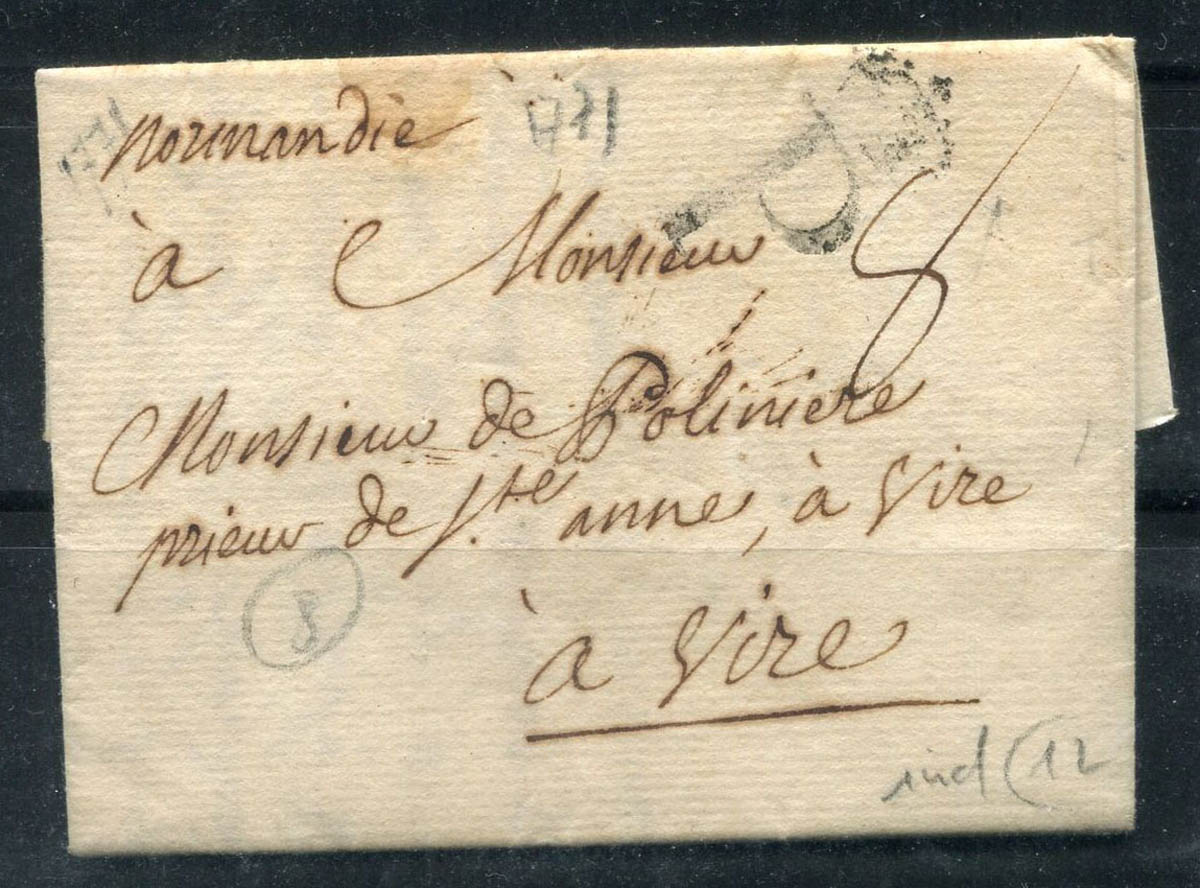 normandie
1771
à Monsieur 8
Monsieur de Poliniere
prieur de Ste anne, à Vire
8
à Vire
ind (12